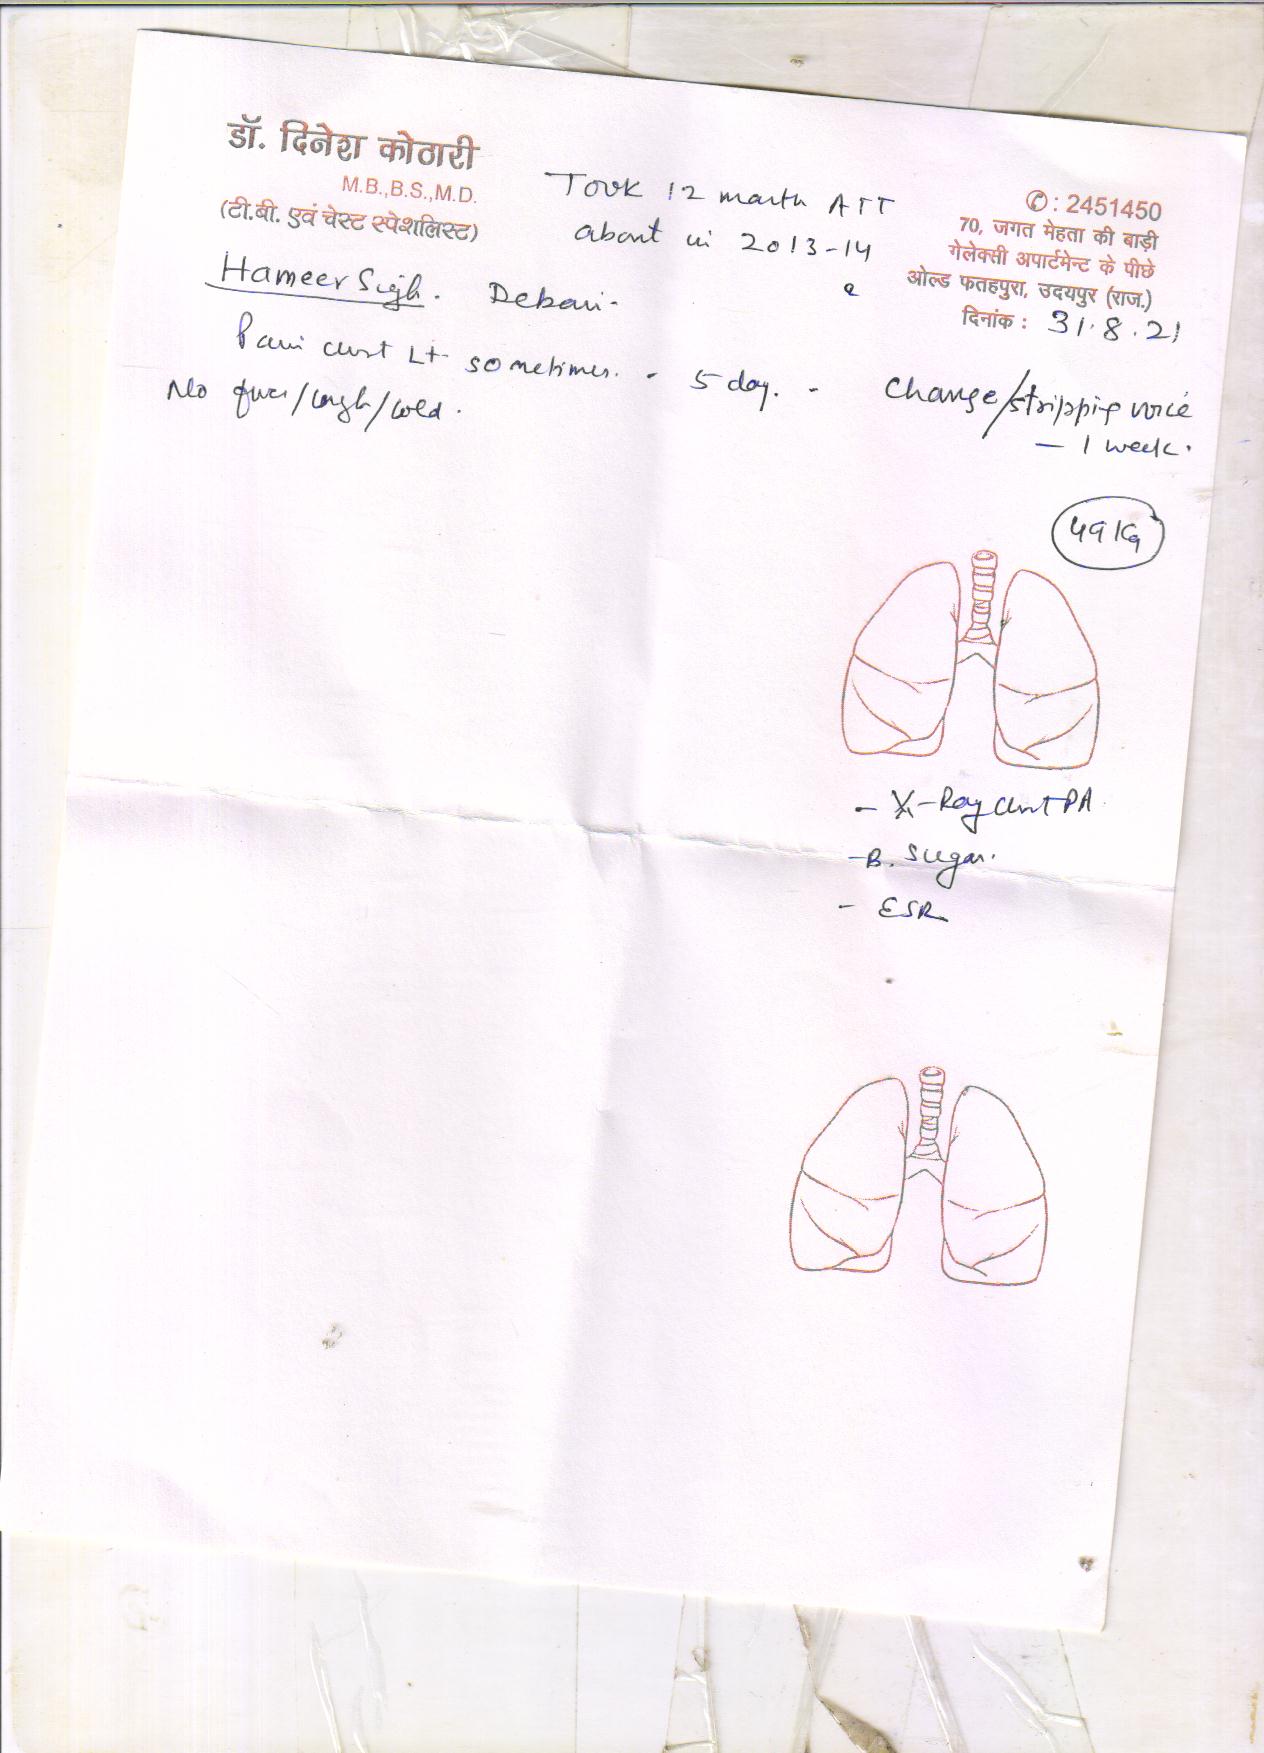 डॉ. दिनेश कोठारी
M.B.,B.S.,M.D.
(टी.बी. एवं चेस्ट स्पेशलिस्ट)
Took 12 month ATT
about in 2013-14
✆ : 2451450
70, जगत मेहता की बाड़ी
गेलेक्सी अपार्टमेन्ट के पीछे
ओल्ड फतहपुरा, उदयपुर (राज.)
दिनांक : 31.8.21
Hameer Sigh. Debari.
Pain chest Lt. sometimes. - 5 day. -
No fever/cough/cold.
Change/stripping voice
- 1 week.
49 Kg
- X-Ray chest PA
- B. Sugar.
- ESR